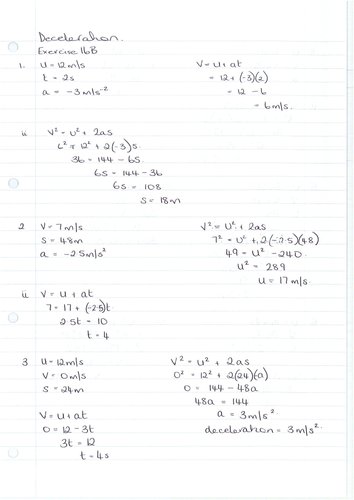 Deceleration.
Exercise 16B
1. u = 12m/s
t = 2s
a = -3m/s⁻²
v = u + at
= 12 + (-3)(2)
= 12 - 6
= 6m/s.
ii v² = u² + 2as
6² = 12² + 2(-3)s.
36 = 144 - 6s
6s = 144 - 36
6s = 108
s = 18m
2 v = 7m/s
s = 48m
a = -2.5m/s²
v² = u² + 2as
7² = u² + 2(-2.5)(48)
49 = u² - 240
u² = 289
u = 17m/s.
ii v = u + at
7 = 17 + (-2.5)t
2.5t = 10
t = 4
3 u = 12m/s
v = 0m/s
s = 24m
v² = u² + 2as
0² = 12² + 2(24)(-a)
0 = 144 - 48a
48a = 144
a = 3m/s².
deceleration = 3m/s².
v = u + at
0 = 12 - 3t
3t = 12
t = 4s